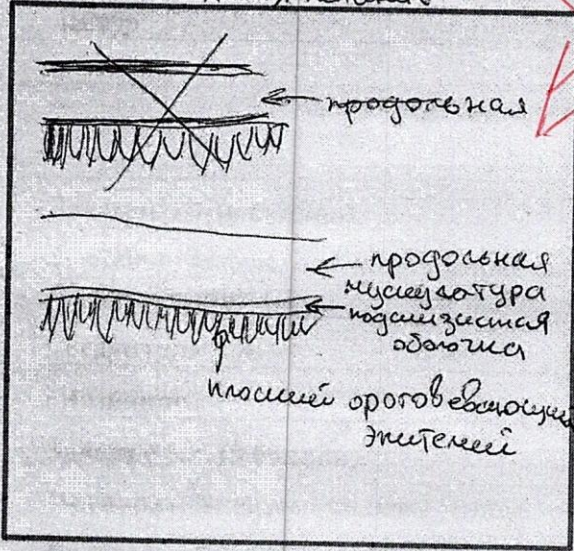 продольная
продольная
мускулатура
подслизистая
оболочка
плоский ороговевающий
эпителий